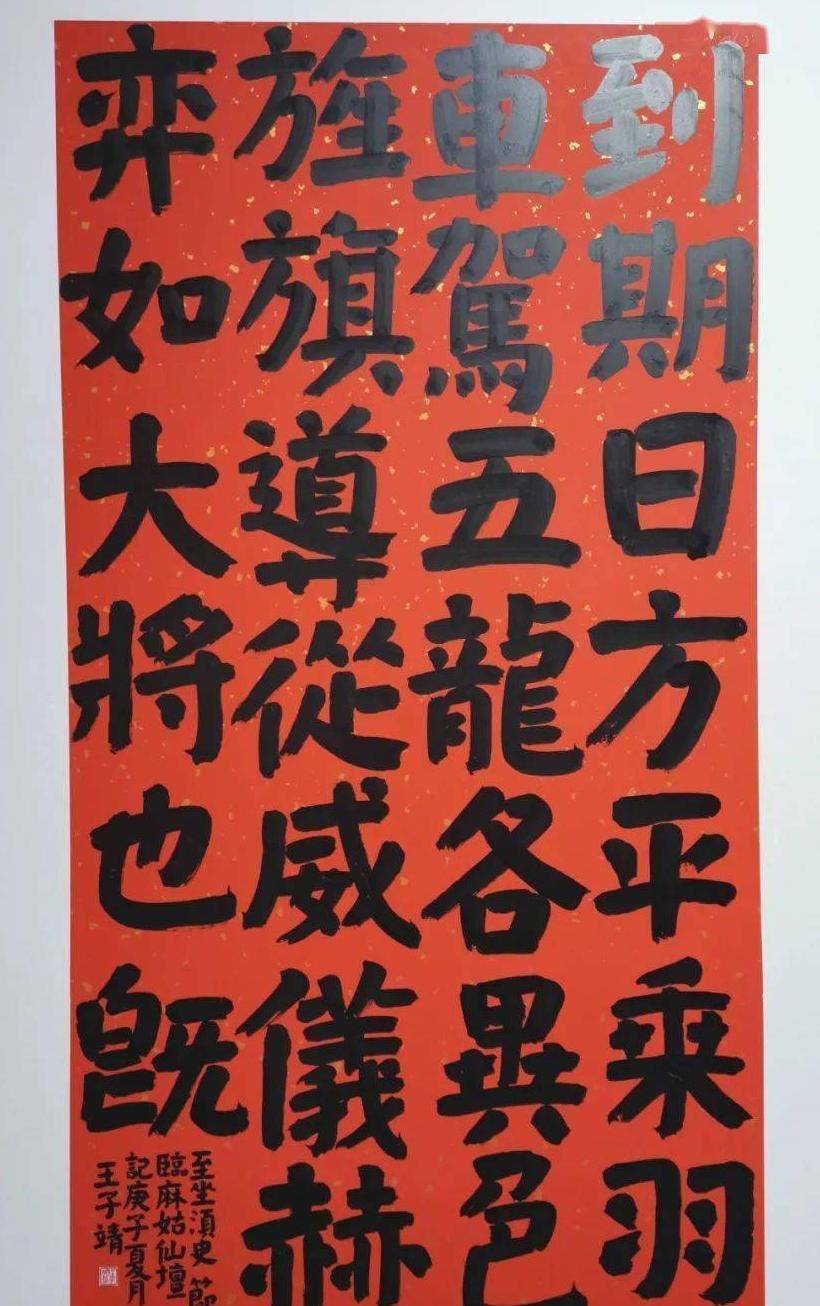 到期日方平乘羽
車駕五龍各異色
旌旗導從威儀赫
弈如大將也既
至坐須臾 節
臨麻姑仙壇
記庚子夏月
王子靖